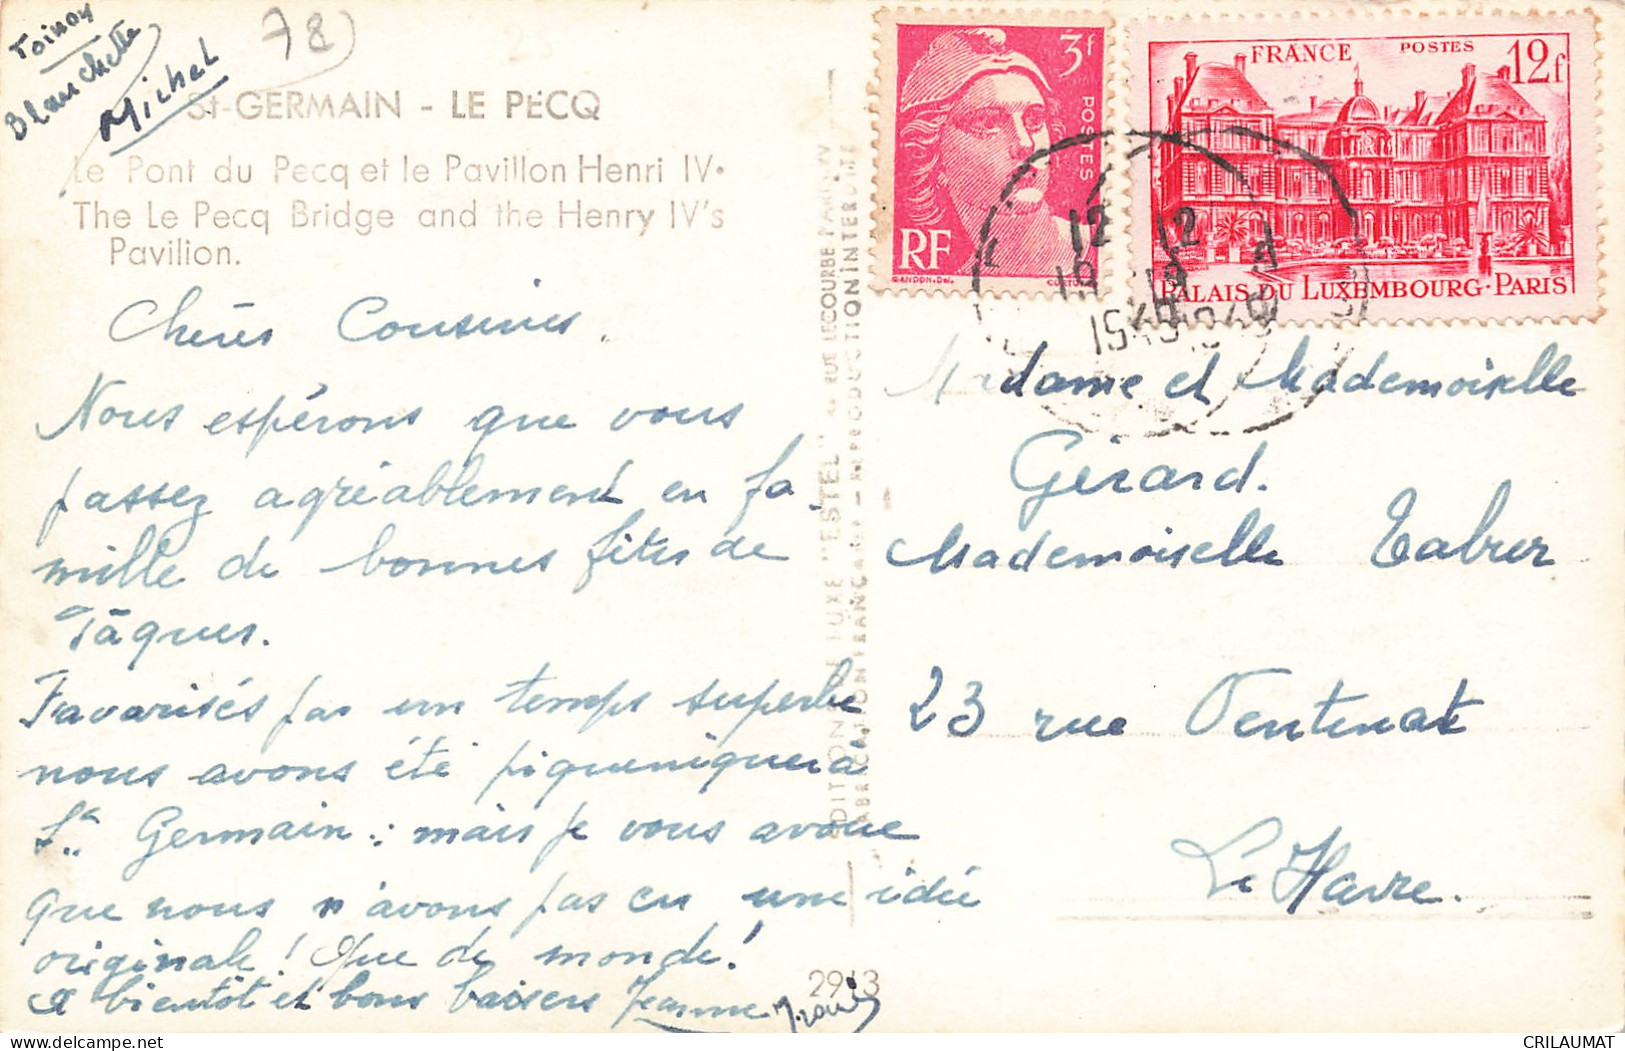 Toinou
Blanchette
Michel
78
St-GERMAIN - LE PECQ
Le Pont du Pecq et le Pavillon Henri IV.
The Le Pecq Bridge and the Henry IV's
Pavilion.
Chères Cousines.
Nous espérons que vous
passez agréablement en fa
mille de bonnes fêtes de
Pâques.
Favorisés par un temps superbe
nous avons été piqueniquer à
St Germain : mais je vous avoue
que nous n'avons pas eu une idée
originale ! Que de monde !
A bientôt et bons baisers Jeanne
2913
EDITIONS DE LUXE "ESTEL" RUE LECOURBE PARIS XV
FABRICATION FRANÇAISE - REPRODUCTION INTERDITE
3f
POSTES
RF
GANDON. Del.
FRANCE POSTES 12f
PALAIS DU LUXEMBOURG-PARIS
12 12
19 19
1949
Madame et Mademoiselle
Gérard.
Mademoiselle
23 rue Ventenat
Le Havre.
CRILAUMAT